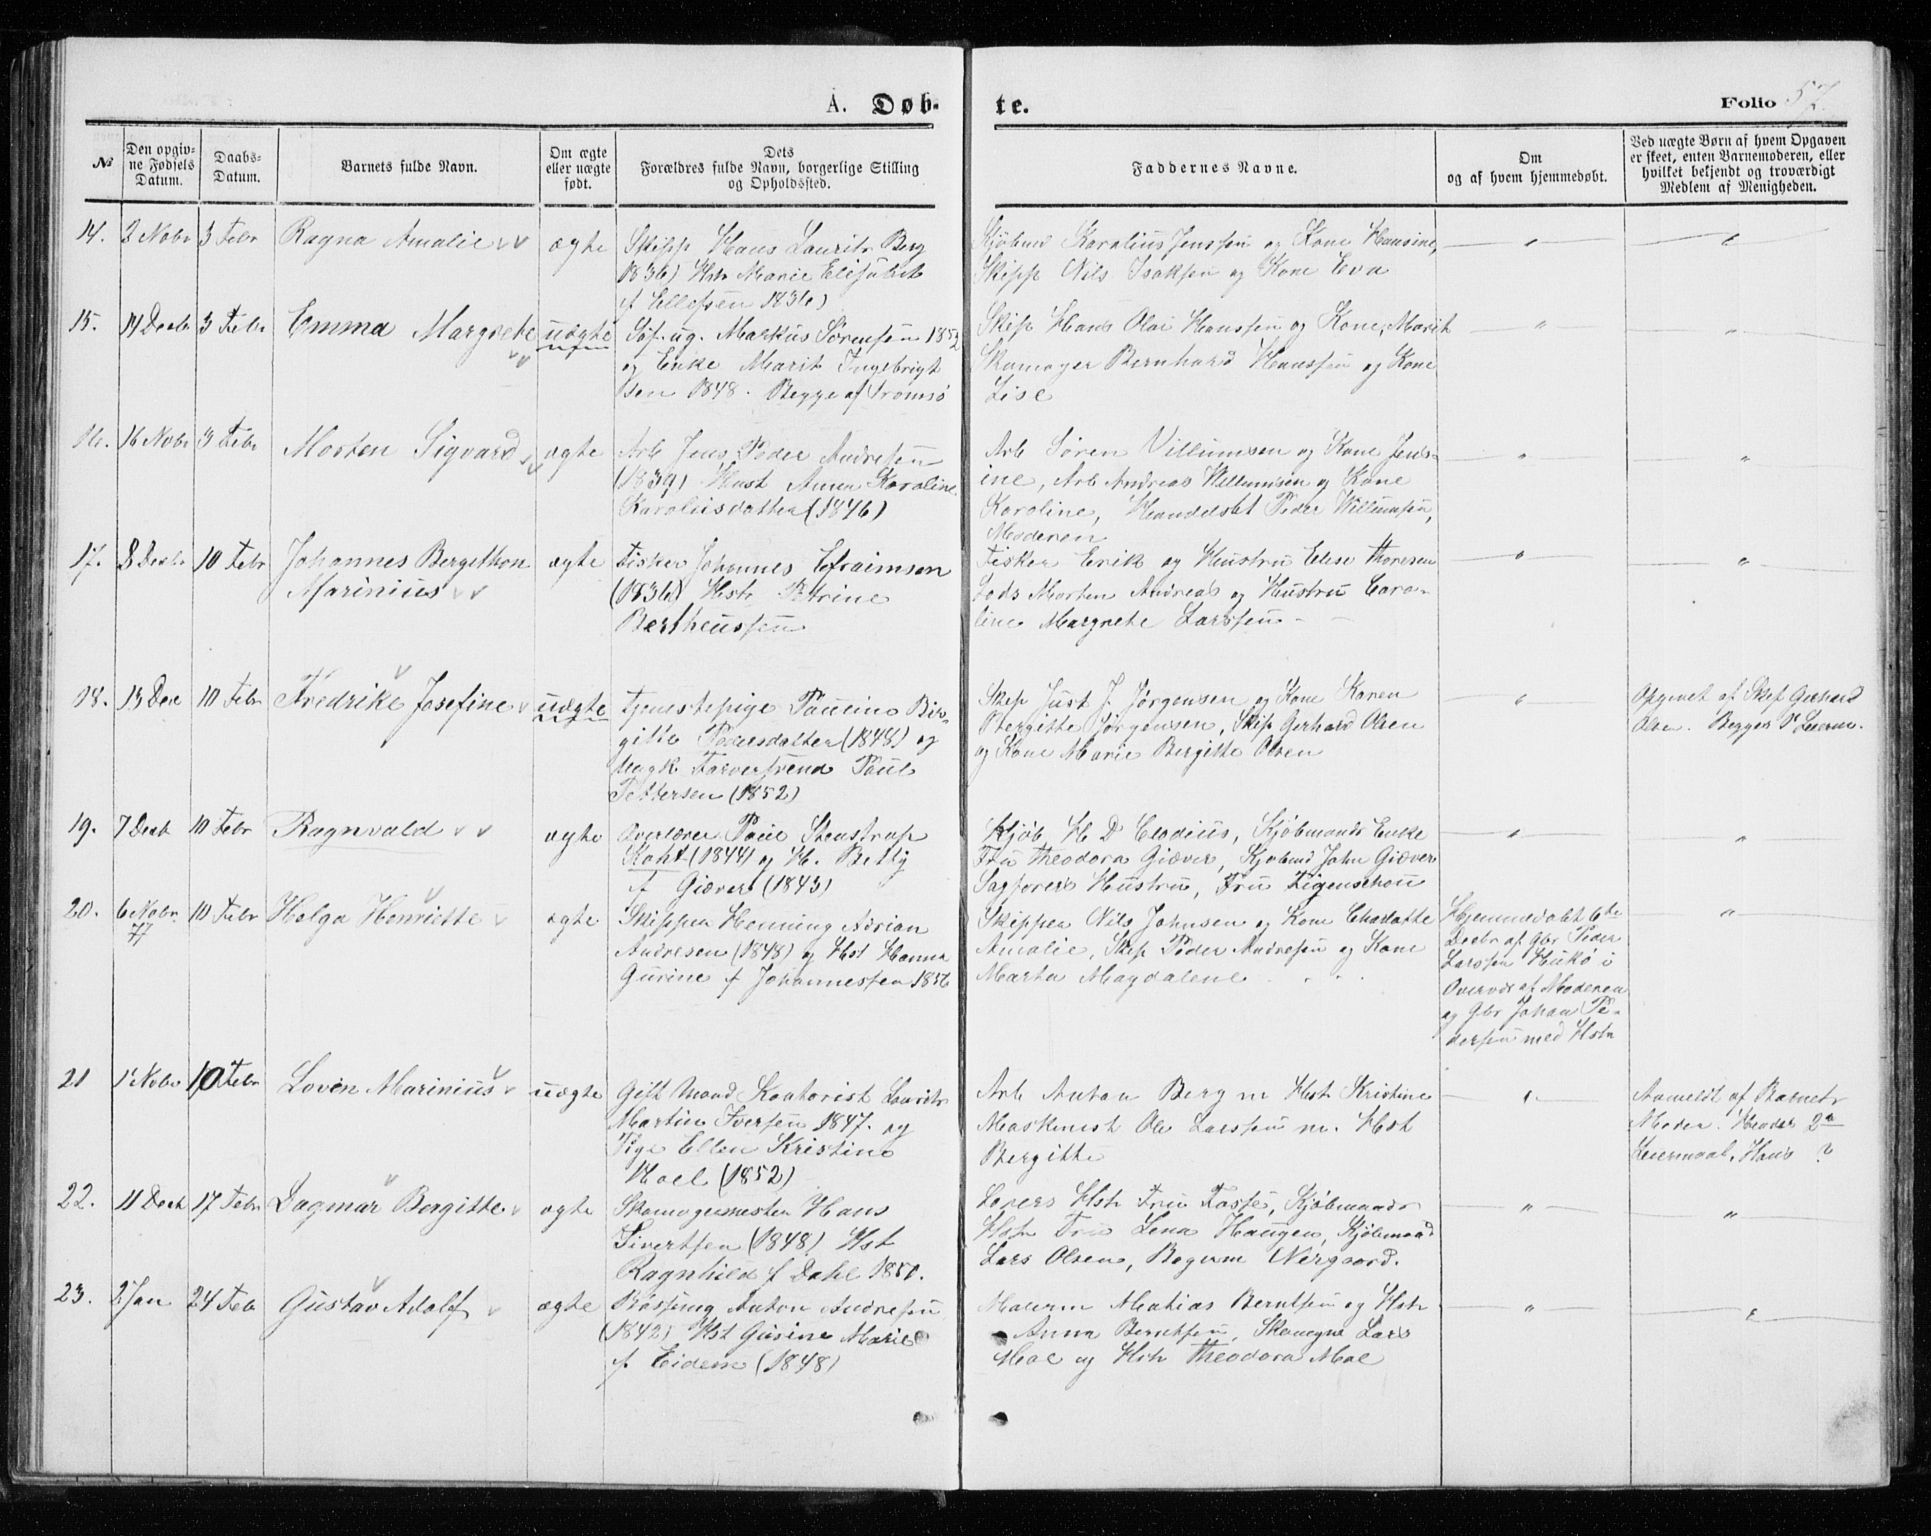 A. Døb-
te.
Folio 57.
№
Den opgiv-
ne Fødsels
Datum.
Daabs-
Datum.
Barnets fulde Navn.
Om ægte
eller uægte
født.
Dets
Forældres fulde Navn, borgerlige Stilling
og Opholdssted.
Faddernes Navne.
Om
og af hvem hjemmedøbt.
Ved uægte Børn af hvem Opgaven
er skeet, enten Barnemoderen, eller
hvilket bekjendt og troværdigt
Medlem af Menigheden.
14. 3 Febr Ragna Amalie ægte
Skipp Hans Laurits Berg
1836) Hstr Marie Elisabet
f Ellefsen 1836)
Kjøbmd Karolius Jenssen og Kone Hansine,
Skipp Nils Isaksen og Kone Eva
15. 14 Decbr 3 Febr Emma Margrete uægte
ug. Markus Sørensen 1852
og Enke Marit Ingebrigt
sen 1848. Begge af Tromsø
Skip Hans Olai Hanssen og Kone, Marit
Skomager Bernhard Hanssen og Kone
Lise
16. 16 Nobr 3 Febr Morten Sigvard ægte
Arb Jens Peder Andresen
(1839) Hust Anna Karoline
Karoliusdatter (1846)
Arb Søren Villumsen og Kone Jens-
ine, Arb Andreas Willumsen og Kone
Karoline, Handelsbt Peder Willumsen,
Moderen
17. 8 Decbr 10 Febr Johannes Bergithon
Marinius ægte
Fisker Johannes Efraimsen
(1836) Hstr Petrine
Bertheussen
Fisker Erik og Hustru Elise Thoresen
Lods Morten Andreas og Hustru Caro-
line Margrete Larssen
18. 13 Dec 10 Febr Fredrike Josefine uægte
Tjenestepige Pauline Bir-
gitte Pedersdatter (1848) og
Ungk Farversvend Paul
Pettersen (1852)
Skip Just J. Jørgensen og Kone Karen
Bergitte Jørgensen, Skip Gerhard Olsen
og Kone Marie Bergitte Olsen
Opgivet af Skip Gerhard
Olsen. Begges 1ste Leierm.
19. 7 Decb 10 Febr Ragnvald ægte
Overlærer Paul Steenstrup
Koht (1844) og H. Betty
f Giæver (1843)
Kjøb. H D Clodius, Kjøbmands Enke
Fru Theodora Giæver, Kjøbmd John Giæver
Sagførers Hustru, Fru Figenschou
20. 6 Nobr
77
10 Febr Helga Henriette ægte
Skipper Henning Adrian
Andresen (1848) og Hst Hanna
Gurine f Johannessen 1856
Skipper Nils Johnsen og Kone Charlotte
Amalie, Skip Peder Andresen og Kone
Marta Magdalene
Hjemmedøbt 6te
Decbr af Gbr Peder
Larssen i
Overvær af Moderen
og Gbr Johan Pe-
dersen med Hstr
21 1 Nobr 10 Febr Loven Marinius uægte
Gift Mand Kontorist Laurits
Martin Iversen 1847. og
Pige Ellen Kristine
Hoel (1852)
Arb Anton Berg m Hst Kristine
Maskinist Ole Larssen m. Hst
Bergitte
Anmeldt af Barnets
Moder. Hendes 2det
Leiermaal, Hans ?
22. 11 Decb 17 Febr Dagmar Bergitte ægte
Skomagermester Hans
Sivertsen (1848) Hst
Ragnhild f Dahl 1850.
Hstr Fru Kjøbmands
Hstr Fru Lena Haugen, Kjøbmand
Lars Olsen, Bagerm Nergaard.
23. 2 Jan 24 Feb Gustav Adolf ægte
Bøssemg Anton Andresen
(1842) Hst Gurine Marie
f Eidem (1848)
Malerm Mathias Berntsen og Hstr
Anna Berntsen, Skomgr Lars
Moe og Hstr Theodora Moe